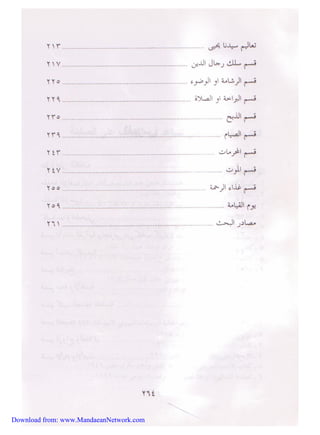 تعاليم سيدنا يحيى ........ ٢١٣
قسم سلك رجال الدين ........ ٢١٧
قسم الرشامة او الوضوء ........ ٢٢٥
قسم البراخة او الصلاة ........ ٢٢٩
قسم الذبح ........ ٢٣٥
قسم الصيام ........ ٢٣٩
قسم المحرمات ........ ٢٤٣
قسم الموت ........ ٢٤٧
قسم غذاء الرحمة ........ ٢٥٥
يوم القيامة ........ ٢٥٩
مصادر البحث ........ ٢٦١
٢٦٤
Download from: www.MandaeanNetwork.com